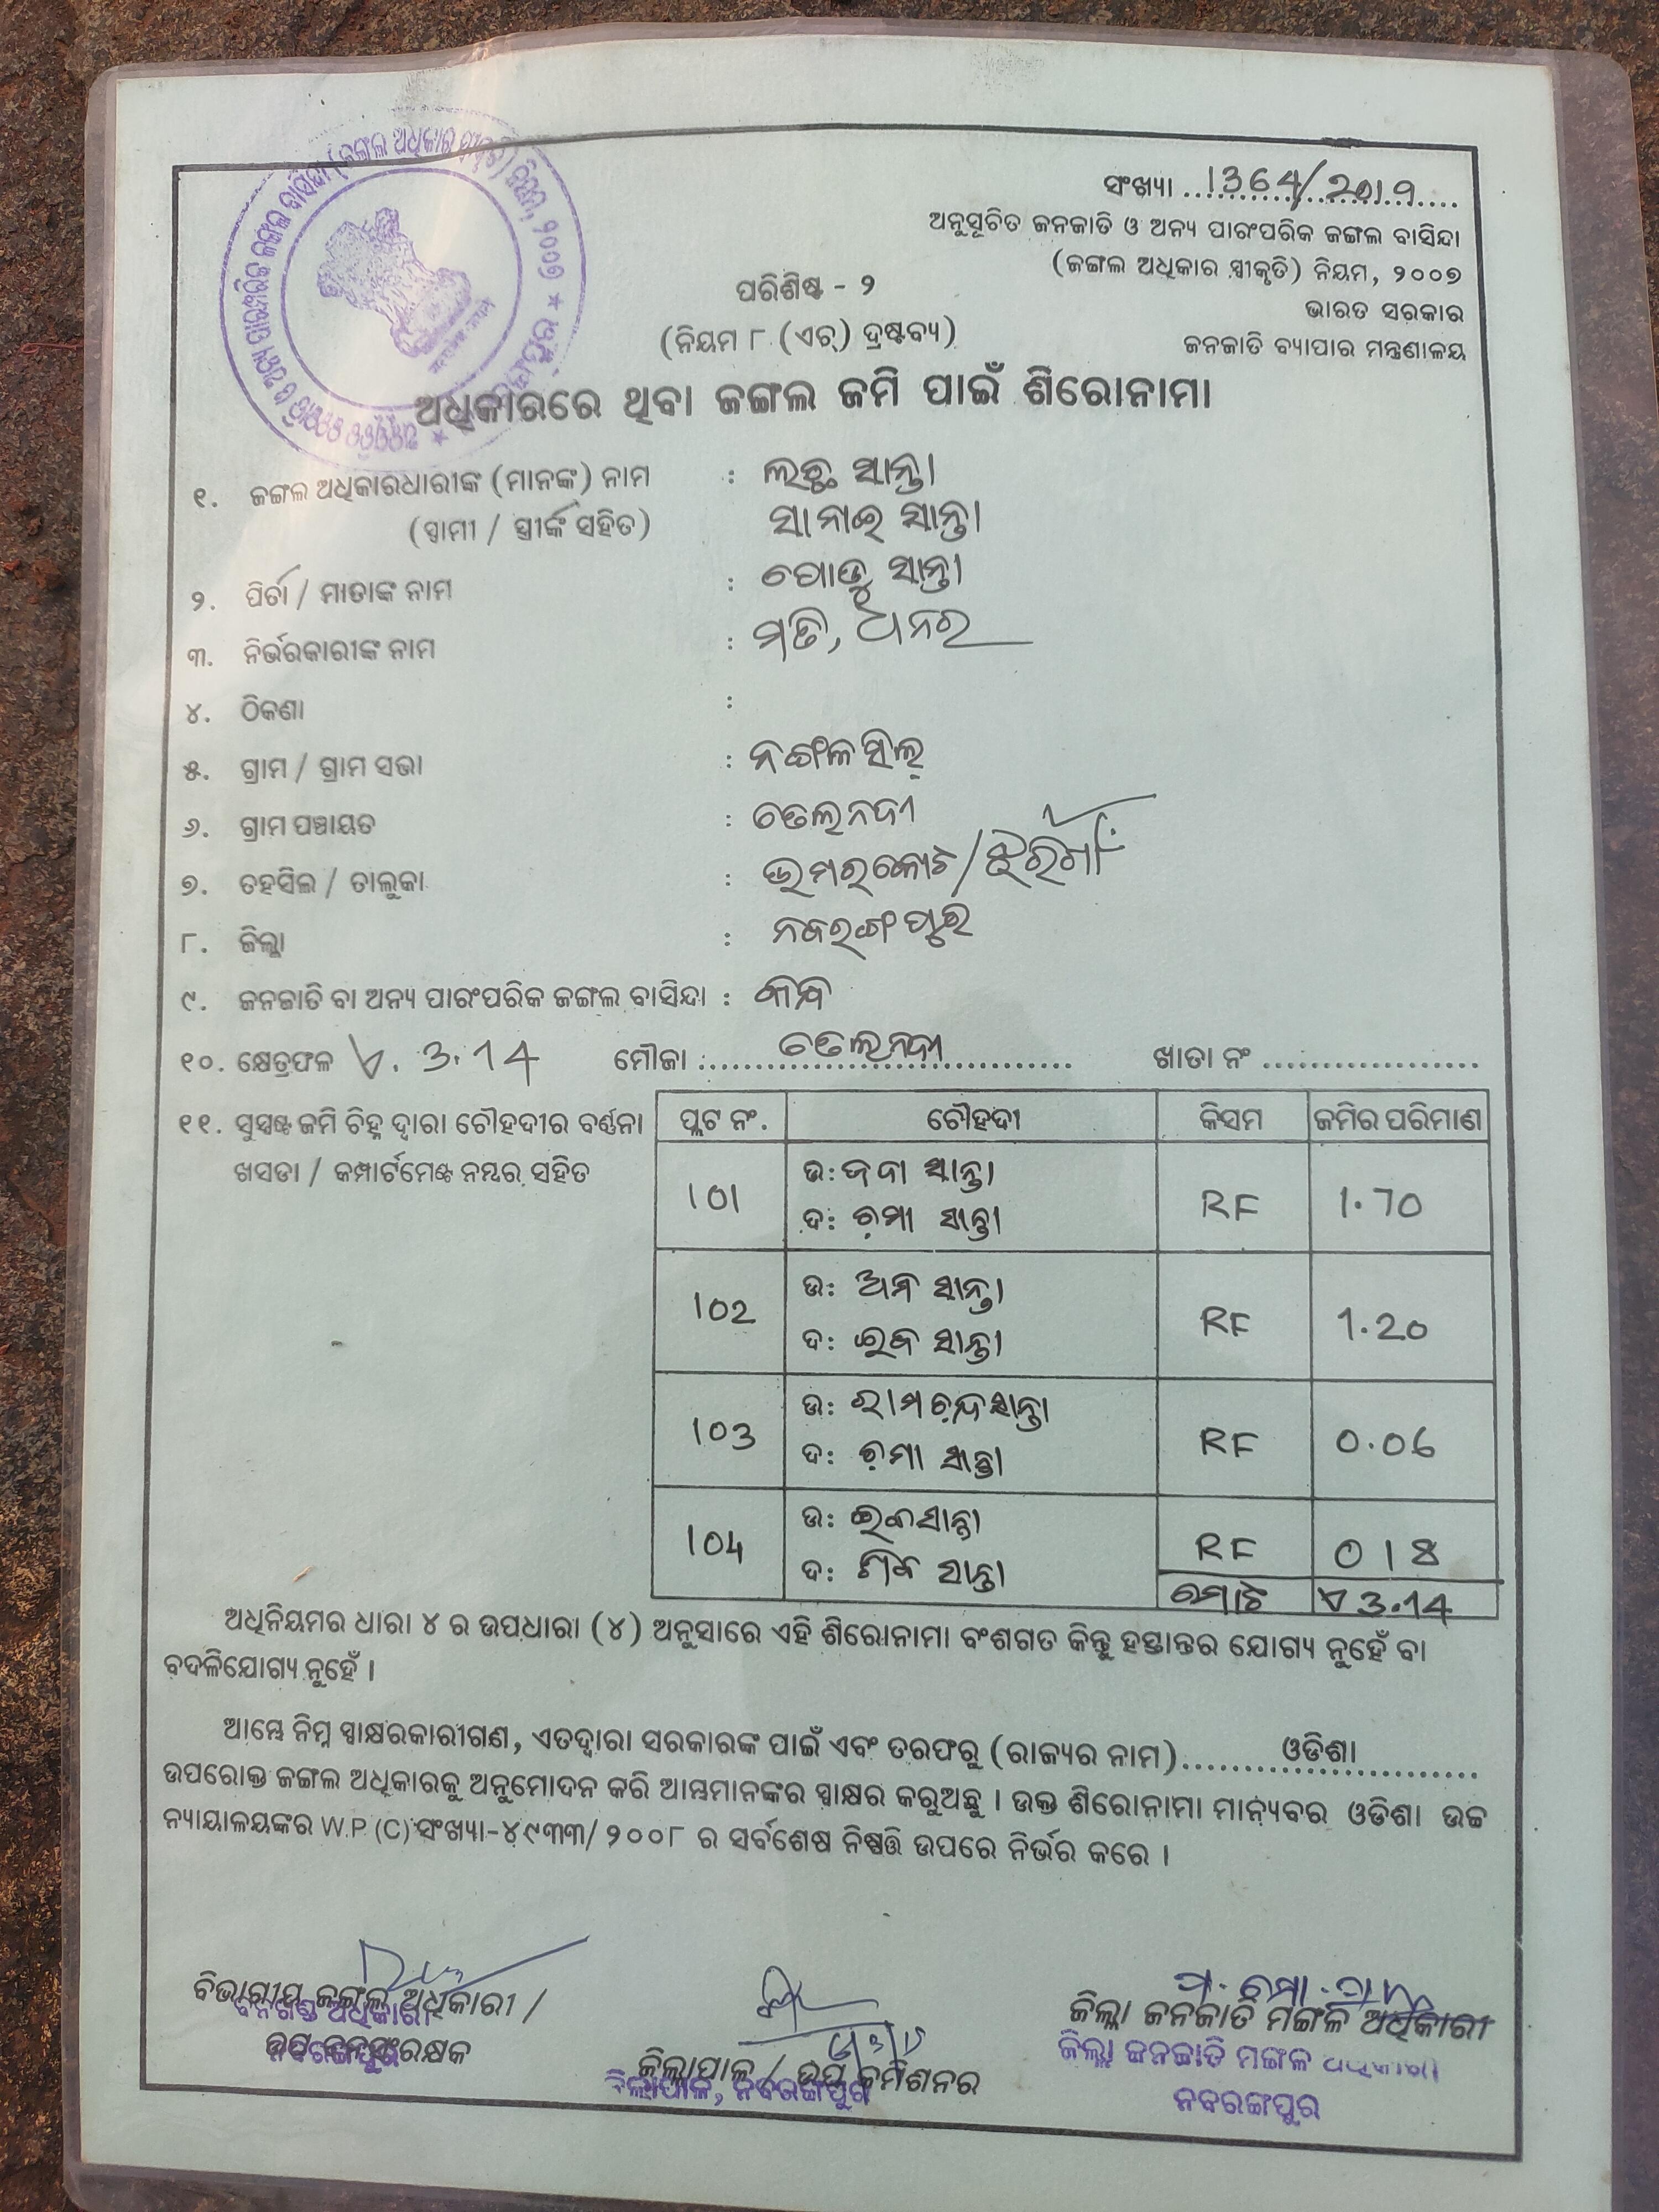 ସଂଖ୍ୟା ..1364/2019....
ଅନୁସୂଚିତ ଜନଜାତି ଓ ଅନ୍ୟ ପାରଂପରିକ ଜଙ୍ଗଲ ବାସିନ୍ଦା
(ଜଙ୍ଗଲ ଅଧିକାର ସ୍ୱୀକୃତି) ନିୟମ, ୨୦୦୭
ଭାରତ ସରକାର
ଜନଜାତି ବ୍ୟାପାର ମନ୍ତ୍ରଣାଳୟ
ପରିଶିଷ୍ଟ - ୨
(ନିୟମ ୮ (ଏଚ୍) ଦ୍ରଷ୍ଟବ୍ୟ)
ଅଧିକାରରେ ଥିବା ଜଙ୍ଗଲ ଜମି ପାଇଁ ଶିରୋନାମା
୧. ଜଙ୍ଗଲ ଅଧିକାରଧାରୀଙ୍କ (ମାନଙ୍କ) ନାମ : ଲଛୁ ସାନ୍ତା
(ସ୍ୱାମୀ / ସ୍ତ୍ରୀଙ୍କ ସହିତ) ସାନାଇ ସାନ୍ତା
୨. ପିତା / ମାତାଙ୍କ ନାମ : ପୋଡୁ ସାନ୍ତା
୩. ନିର୍ଭରକାରୀଙ୍କ ନାମ : ମତି, ଧନର
୪. ଠିକଣା :
୫. ଗ୍ରାମ / ଗ୍ରାମ ସଭା : ନଙ୍ଗଳସିଲ୍
୬. ଗ୍ରାମ ପଞ୍ଚାୟତ : ତେଲନଦୀ
୭. ତହସିଲ / ତାଲୁକା : ଉମରକୋଟ/ଝରିଗାଁ
୮. ଜିଲ୍ଲା : ନବରଙ୍ଗପୁର
୯. ଜନଜାତି ବା ଅନ୍ୟ ପାରଂପରିକ ଜଙ୍ଗଲ ବାସିନ୍ଦା : କନ୍ଧ
୧୦. କ୍ଷେତ୍ରଫଳ ଏ. 3.14 ମୌଜା ....ତେଲନଦୀ.... ଖାତା ନଂ ..................
୧୧. ସୁସ୍ପଷ୍ଟ ଜମି ଚିହ୍ନ ଦ୍ୱାରା ଚୌହଦୀର ବର୍ଣ୍ଣନା
ଖସଡା / କମ୍ପାର୍ଟମେଣ୍ଟ ନମ୍ବର ସହିତ
ପ୍ଲଟ ନଂ. ଚୌହଦୀ କିସମ ଜମିର ପରିମାଣ
101 ଉ: ଜବା ସାନ୍ତା RF 1.70
ଦ: ଚମା ସାନ୍ତା
102 ଉ: ଅନ ସାନ୍ତା RF 1.20
ଦ: ଭଜ ସାନ୍ତା
103 ଉ: ରାମଚନ୍ଦ୍ର ସାନ୍ତା RF 0.06
ଦ: ଚମା ସାନ୍ତା
104 ଉ: ସାନ୍ତା RF 0 18
ଦ: ସାନ୍ତା
ମୋଟ ଏ 3.14
ଅଧିନିୟମର ଧାରା ୪ ର ଉପଧାରା (୪) ଅନୁସାରେ ଏହି ଶିରୋନାମା ବଂଶଗତ କିନ୍ତୁ ହସ୍ତାନ୍ତର ଯୋଗ୍ୟ ନୁହେଁ ବା
ବଦଳିଯୋଗ୍ୟ ନୁହେଁ ।
ଆମ୍ଭେ ନିମ୍ନ ସ୍ୱାକ୍ଷରକାରୀଗଣ, ଏତଦ୍ୱାରା ସରକାରଙ୍କ ପାଇଁ ଏବଂ ତରଫରୁ (ରାଜ୍ୟର ନାମ)........ଓଡିଶା........
ଉପରୋକ୍ତ ଜଙ୍ଗଲ ଅଧିକାରକୁ ଅନୁମୋଦନ କରି ଆମ୍ଭମାନଙ୍କର ସ୍ୱାକ୍ଷର କରୁଅଛୁ । ଉକ୍ତ ଶିରୋନାମା ମାନ୍ୟବର ଓଡିଶା ଉଚ୍ଚ
ନ୍ୟାୟାଳୟଙ୍କର W.P.(C) ସଂଖ୍ୟା-୪୯୩୩/୨୦୦୮ ର ସର୍ବଶେଷ ନିଷ୍ପତ୍ତି ଉପରେ ନିର୍ଭର କରେ ।
ବିଭାଗୀୟ ଜଙ୍ଗଲ ଅଧିକାରୀ /
ବନଖଣ୍ଡ ଅଧିକାରୀ
ଉପ ବନସଂରକ୍ଷକ
ନବରଙ୍ଗପୁର
ଜିଲ୍ଲାପାଳ / ଉପ କମିଶନର
ଜିଲ୍ଲାପାଳ, ନବରଙ୍ଗପୁର
ଜିଲ୍ଲା ଜନଜାତି ମଙ୍ଗଳ ଅଧିକାରୀ
ଜିଲ୍ଲା ଜନଜାତି ମଙ୍ଗଳ ଅଧିକାରୀ
ନବରଙ୍ଗପୁର